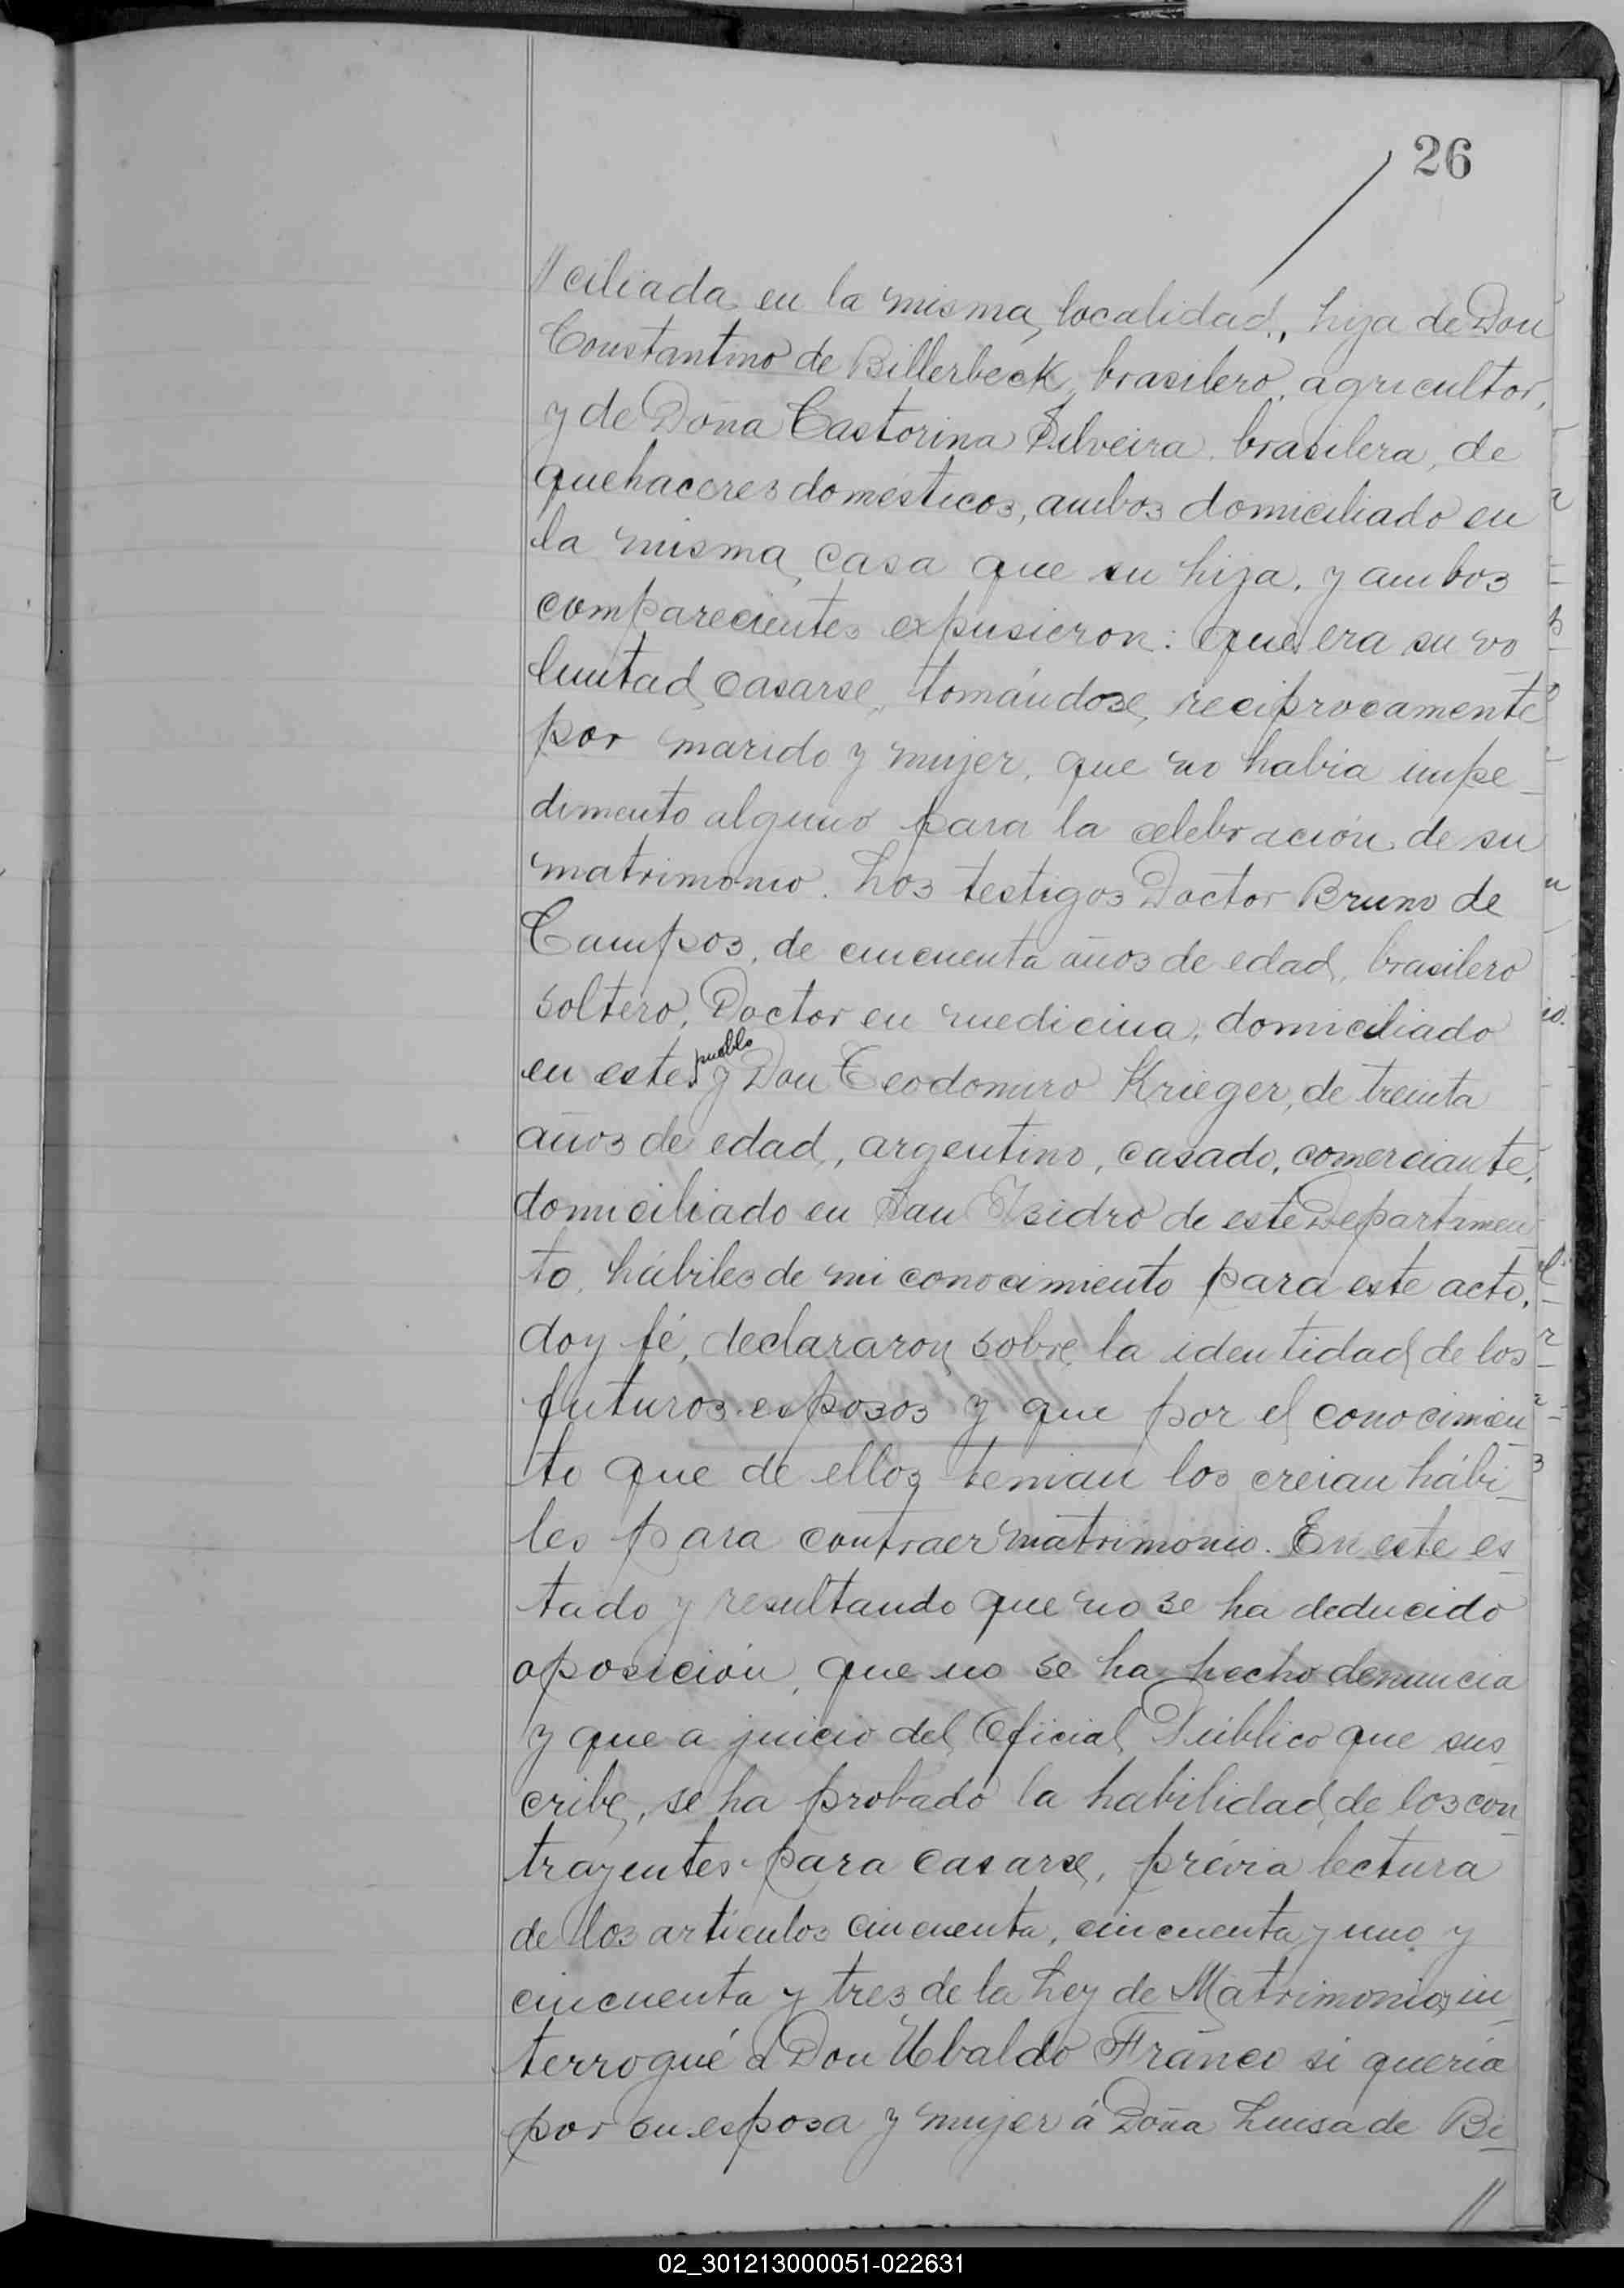 26
// ciliada en la misma localidad, hija de Don
Constantino de Billerbeck, brasilero, agricultor,
y de Doña Castorina Silveira, brasilera, de
quehaceres domésticos, ambos domiciliado en
la misma casa que su hija, y ambos
comparecientes expusieron: que era su vo
luntad casarse, tomándose reciprocamente
por marido y mujer, que no habia impe-
dimento alguno para la celebración de su
matrimonio. Los testigos Doctor Bruno de
Campos, de cincuenta años de edad, brasilero
soltero, Doctor en medicina, domiciliado
en este pueblo y Don Teodomiro Krieger, de treinta
años de edad, argentino, casado, comerciante,
domiciliado en San Isidro de este Departamen-
to, hábiles de mi conocimiento para este acto,
doy fé, declararon sobre la identidad de los
futuros esposos y que por el conocimien
to que de ellos tenian los creian hábi-
les para contraer matrimonio. En este es-
tado y resultando que no se ha deducido
oposición, que no se ha hecho denuncia
y que a juicio del Oficial Público que sus-
cribe, se ha probado la habilidad de los con-
trayentes para casarse, prévia lectura
de los artículos cincuenta, cincuenta y uno y
cincuenta y tres de la Ley de Matrimonio, in-
terrogué á Don Ubaldo Franco si queria
por su esposa y mujer á Doña Luisa de Bi-
//
02_301213000051-022631